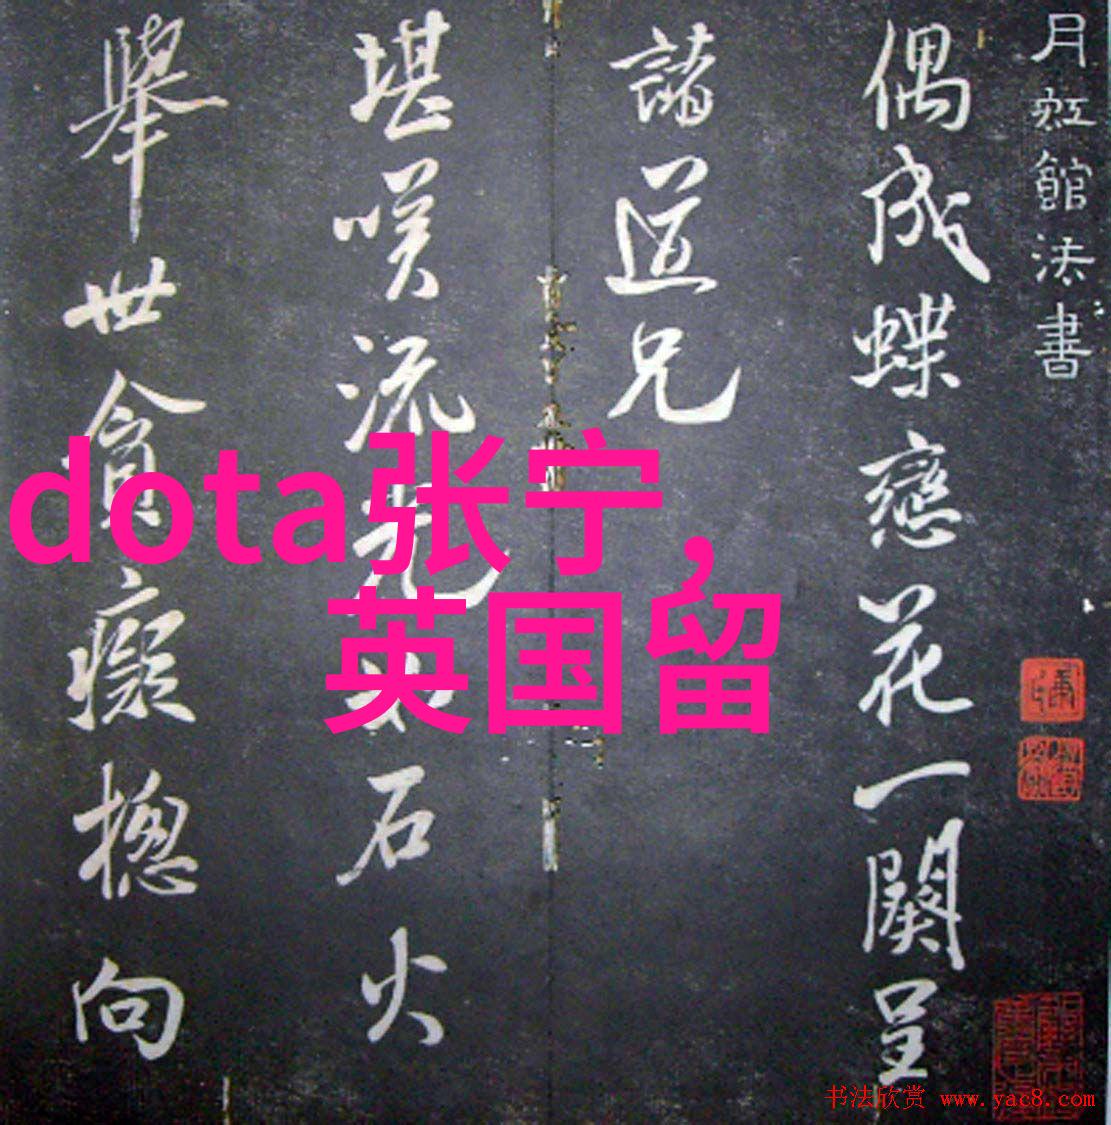 月虹館法書
偶成蝶戀花一闋呈
諸道兄
堪嘆流光如石火
舉世貪癡摠向
dota张宁，
英国留
书法欣赏 www.yac8.com